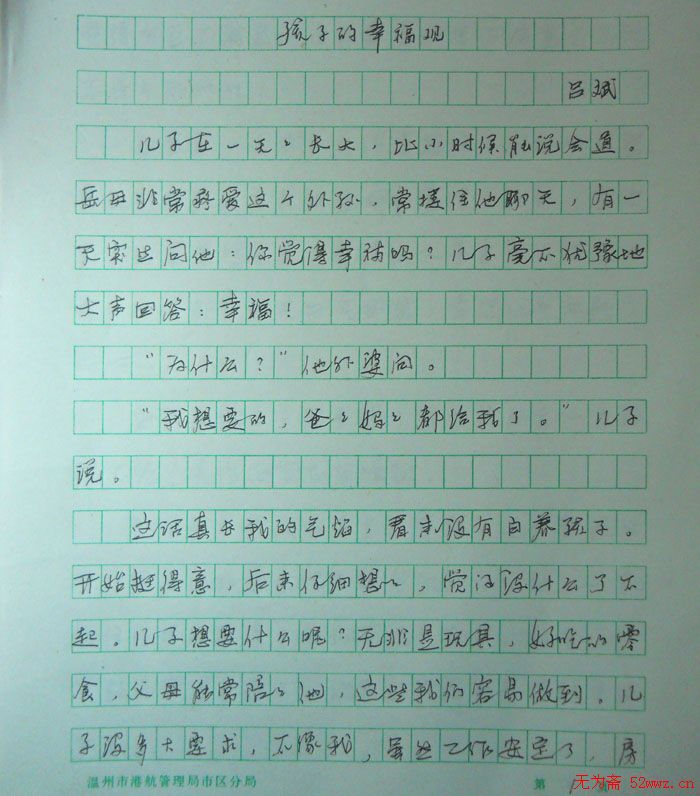 孩子的幸福观
吕斌
儿子在一天天长大，比小时候能说会道。
岳母非常疼爱这个外孙，常搂住他聊天，有一
天突然问他：你觉得幸福吗？儿子毫不犹豫地
大声回答：幸福！
“为什么？”他外婆问。
“我想要的，爸爸妈妈都给我了。”儿子
说。
这话真长我的气焰，看来没有白养孩子。
开始挺得意，后来仔细想想，觉得没什么了不
起。儿子想要什么呢？无非是玩具，好吃的零
食，父母能常陪陪他，这些我们容易做到。儿
子没多大要求，不像我，虽然工作安定了，房
温州市港航管理局市区分局 第 1 页
无为斋 52wwz.cn